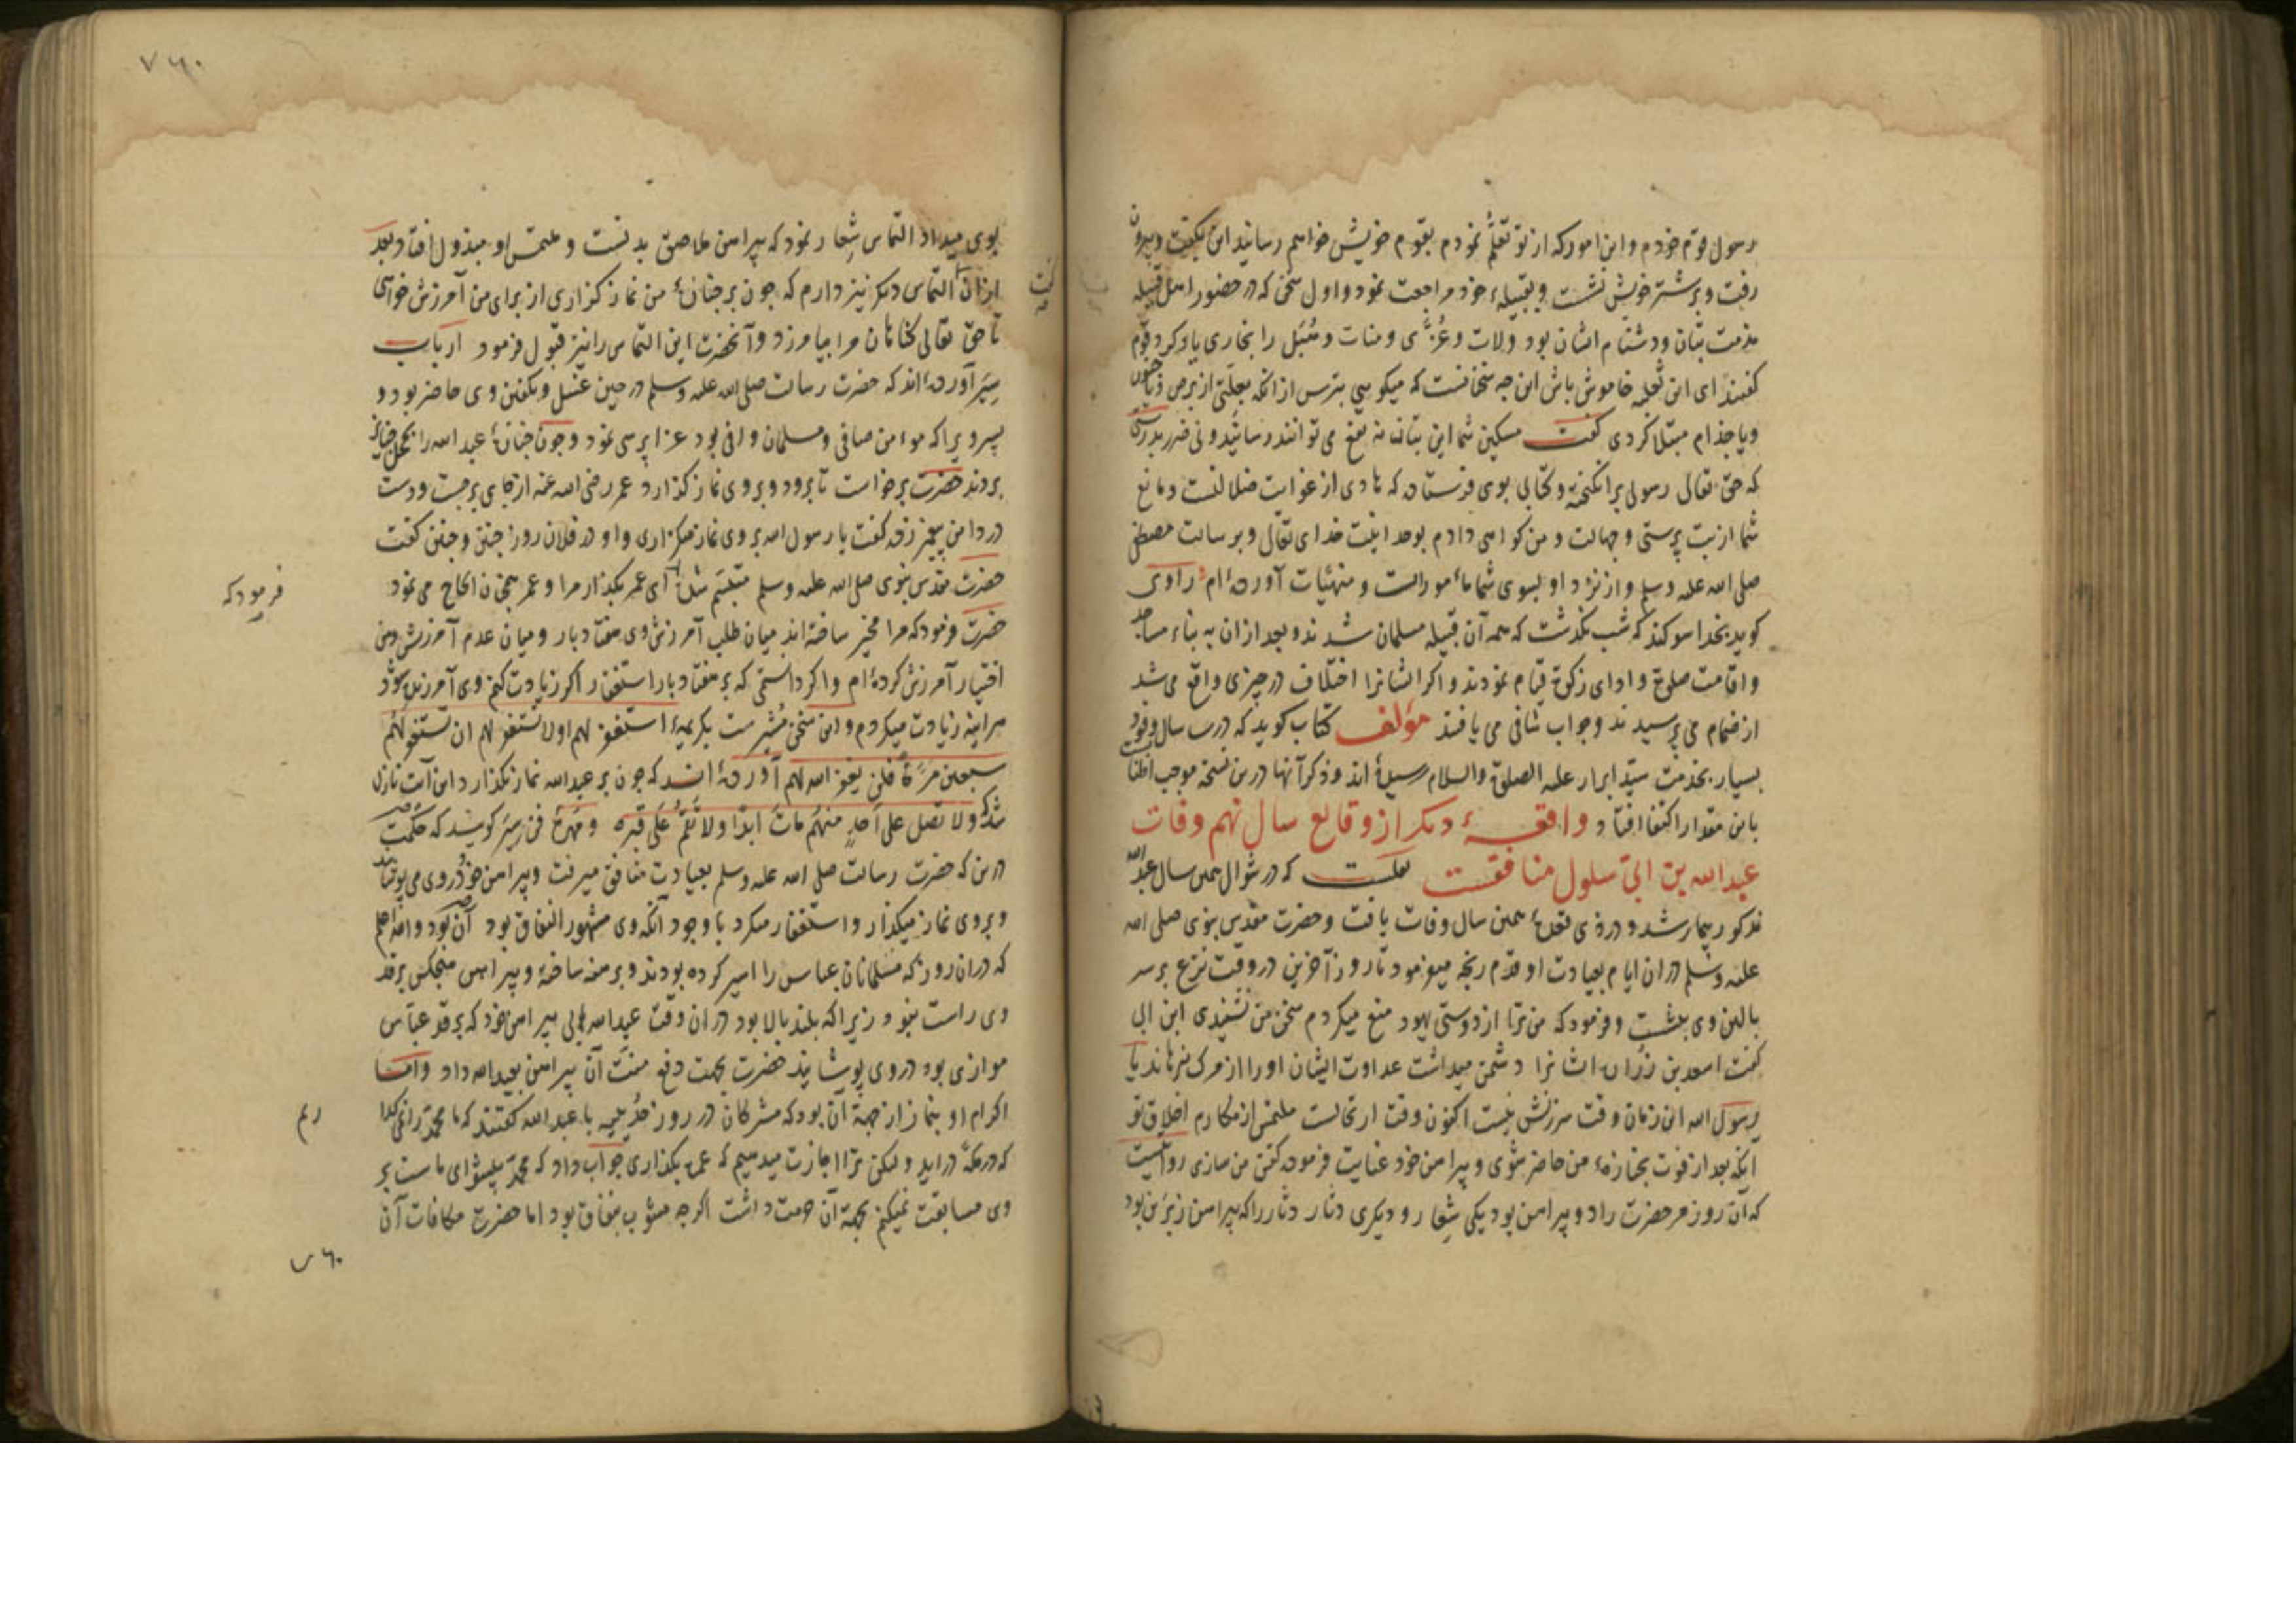 رسول قوم خودم و این امور که از تو تعلّم نمودم بقوم خویش خواهم رسانید این بگفت و بیرون
رفت و بر شتر خویش نشست و بقبیلهٔ خود مراجعت نمود و اول سخن که در حضور اهل قبیله
مذمت بتان و دشنام ایشان بود و لات و عُزّی و منات و هُبَل را بخاری یاد کرد قوم
گفتند ای ابن ثعلبه خاموش باش این چه سخنانست که میگویی بترس از انکه بعلّتی از برص و یا جنون
ویا جذام مبتلا کردی گفت مسکین شما این بتان نه نفع می توانند رسانید و نی ضرر بدرستی
که حق تعالی رسولی برانکیخته و کتابی بوی فرستاده که هادی از غوایت ضلالتست و مانع
شما از بت پرستی و جهالت و من کواهی دادم بوحدانیّت خدای تعالی و برسالت مصطفی
صلی الله علیه وسلم و از نزد او بسوی شما مأمورات و منهیّات آورده‌ام راوی
کوید بخدا سوکند که شب نکذشت که همه آن قبیله مسلمان شدند و بعد ازان به بناء مساجد
و اقامت صلوة و ادای زکوة قیام نمودند و اکر ایشانرا اختلاف در چیزی واقع می شد
از ضمام می پرسیدند و جواب شافی می یافتند مؤلف کتاب کوید که درین سال وفود
بسیار بخدمت سیّد ابرار علیه الصلوة والسلام رسیده‌اند و ذکر آنها درین نسخه موجب اطنابست
باین مقدار اکتفا افتاد واقعهٔ دیکر از وقایع سال نهم وفات
عبدالله بن ابیّ سلول منافقست نقلست که در شوال همین سال عبدالله
مذکور بیمار شد و در ذی قعدهٔ همین سال وفات یافت و حضرت مقدّس نبوی صلی الله
علیه وسلم دران ایام بعیادت او قدم رنجه میفرمود تا روز آخرین در وقت نزع بر سر
بالین وی بنشست و فرمود که من ترا از دوستی یهود منع میکردم سخن من نشنیدی ابن ابی
گفت اسعد بن زراره ایشانرا دشمن میداشت عداوت ایشان او را از مرک نرهانید یا
رسول الله این زمان وقت سرزنش نیست اکنون وقت ارتحالست ملتمس از مکارم اخلاق تو
آنکه بعد از فوت بجنازهٔ من حاضر شوی و پیراهن خود عنایت فرموده کفن من سازی روایتست
که آن روز مر حضرت را دو پیراهن بود یکی شِعار و دیکری دثار دثار را که پیراهن زبرین بود
۷۶۰
بوی میداد التماس شِعار نمود که پیراهن ملاصق بدنست و ملتمس او مبذول افتاد بعد
ازان گفت التماس دیکر نیز دارم که چون بر جنازهٔ من نماز کزاری از برای من آمرزش خواهی
تا حق تعالی کناهان مرا بیامرزد و آنحضرت این التماس را نیز قبول فرمود ارباب
سِیَر آورده‌اند که حضرت رسالت صلی الله علیه وسلم در حین غسل و تکفین وی حاضر بود و
پسر ویرا که مؤمن صافی و مسلمان وافی بود عزا پرسی نمود و چون جنازهٔ عبدالله را بمحل جنایز
بردند حضرت برخواست تا برود و بروی نماز کذارد عمر رضی الله عنه از جای برجست و دست
در دامن پیغمبر زده گفت یا رسول الله بروی نماز میکزاری و او در فلان روز چنین و چنین گفت
حضرت مقدس نبوی صلی الله علیه وسلم متبسّم شد فرمودکه ای عمر بکذار مرا و عمر همچنان الحاح می نمود
حضرت فرمود که مرا مخیّر ساخته‌اند میان طلب آمرزش وی هفتاد بار و میان عدم آمرزش و من
اختیار آمرزش کرده‌ام و اکر دانستمی که بر هفتاد بار استغفار اکر زیادت کنم وی آمرزیده شود
هر اینه زیادت میکردم و این سخن مُشیرست بکریمهٔ استغفر لهم او لا تستغفر لهم ان تستغفر لهم
سبعین مرّةً فلن یغفر الله لهم آورده‌اند که چون بر عبدالله نماز بکذارد این آیت نازل
شد که ولا تصل علی احدٍ منهم مات ابدًا ولا تقم علی قبره و مهرهٔ فن سِیَر کویند که حکمت
درین که حضرت رسالت صلی الله علیه وسلم بعیادت منافق میرفت و پیراهن خود در وی می پوشاند
و بروی نماز میکذارد و استغفار میکرد با وجود آنکه وی مشهور النفاق بود آن بود والله اعلم
که دران روز که مسلمانان عباس را اسیر کرده بودند و برهنه ساخته و پیراهن هیچکس بر قد
وی راست نبود زیرا که بلند بالا بود دران وقت عبدالله ابی پیراهن خود که بر قد عبّاس
موازی بود در وی پوشانید حضرت بجهت دفع منّت آن پیراهن بعبدالله داد و امّا
اکرام او بنماز از جهة آن بود که مشرکان در روز حُدَیبیه با عبدالله گفتند که ما محمّد را نمی کذاریم
که در مکّه دراید ولیکن ترا اجازت میدهیم که عمره بکذاری جواب داد که محمّد پیشوای ماست بر
وی مسابقت نمیکنم بجهة آن حرمت داشت اکرچه مشوب بنفاق بود اما حضرت مکافات آن
۷۶۰